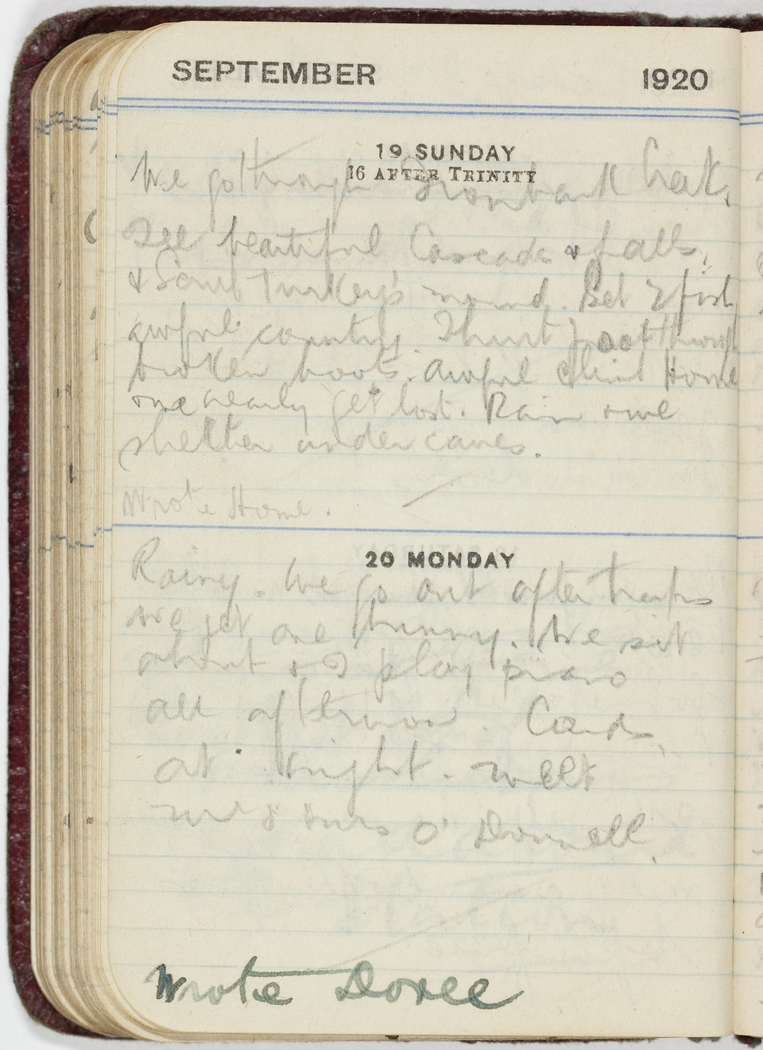 SEPTEMBER 1920
19 SUNDAY
16 AFTER TRINITY
We go through Ironbark Creek.
See beautiful Cascades & falls,
& Scrub Turkey's mound. Get 2 fish
awful country I hurt foot through
broken boots. awful climb Home
one nearly get lost. Rain & we
shelter under caves.
Wrote Home.
20 MONDAY
Rainy. We go out after traps
we get one bunny. We sit
about & I play piano
all afternoon. Cards,
at night. Melt
Mr & Mrs O'Donnell.
Wrote Doree